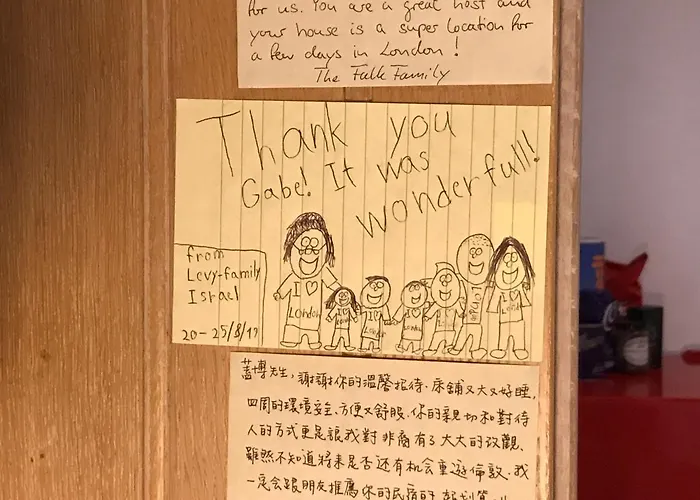 for us. You are a great host and
your house is a super location for
a few days in London!
The Falk Family
Thank you
Gabe! It was
wonderfull!
from
Levy-family
Israel
20-25/8/17
I ♡
London
I ♡
London
I ♡
London
I ♡
London
I ♡
London
I ♡
London
I ♡
London
蓋博先生,謝謝你的溫馨招待.床鋪又大又好睡,
四周的環境安全、方便又舒服.你的親切和對待
人的方式更是讓我對非裔有了大大的改觀、
雖然不知道將來是否還有机会重遊倫敦.我
一定会跟朋友推薦你的民宿的